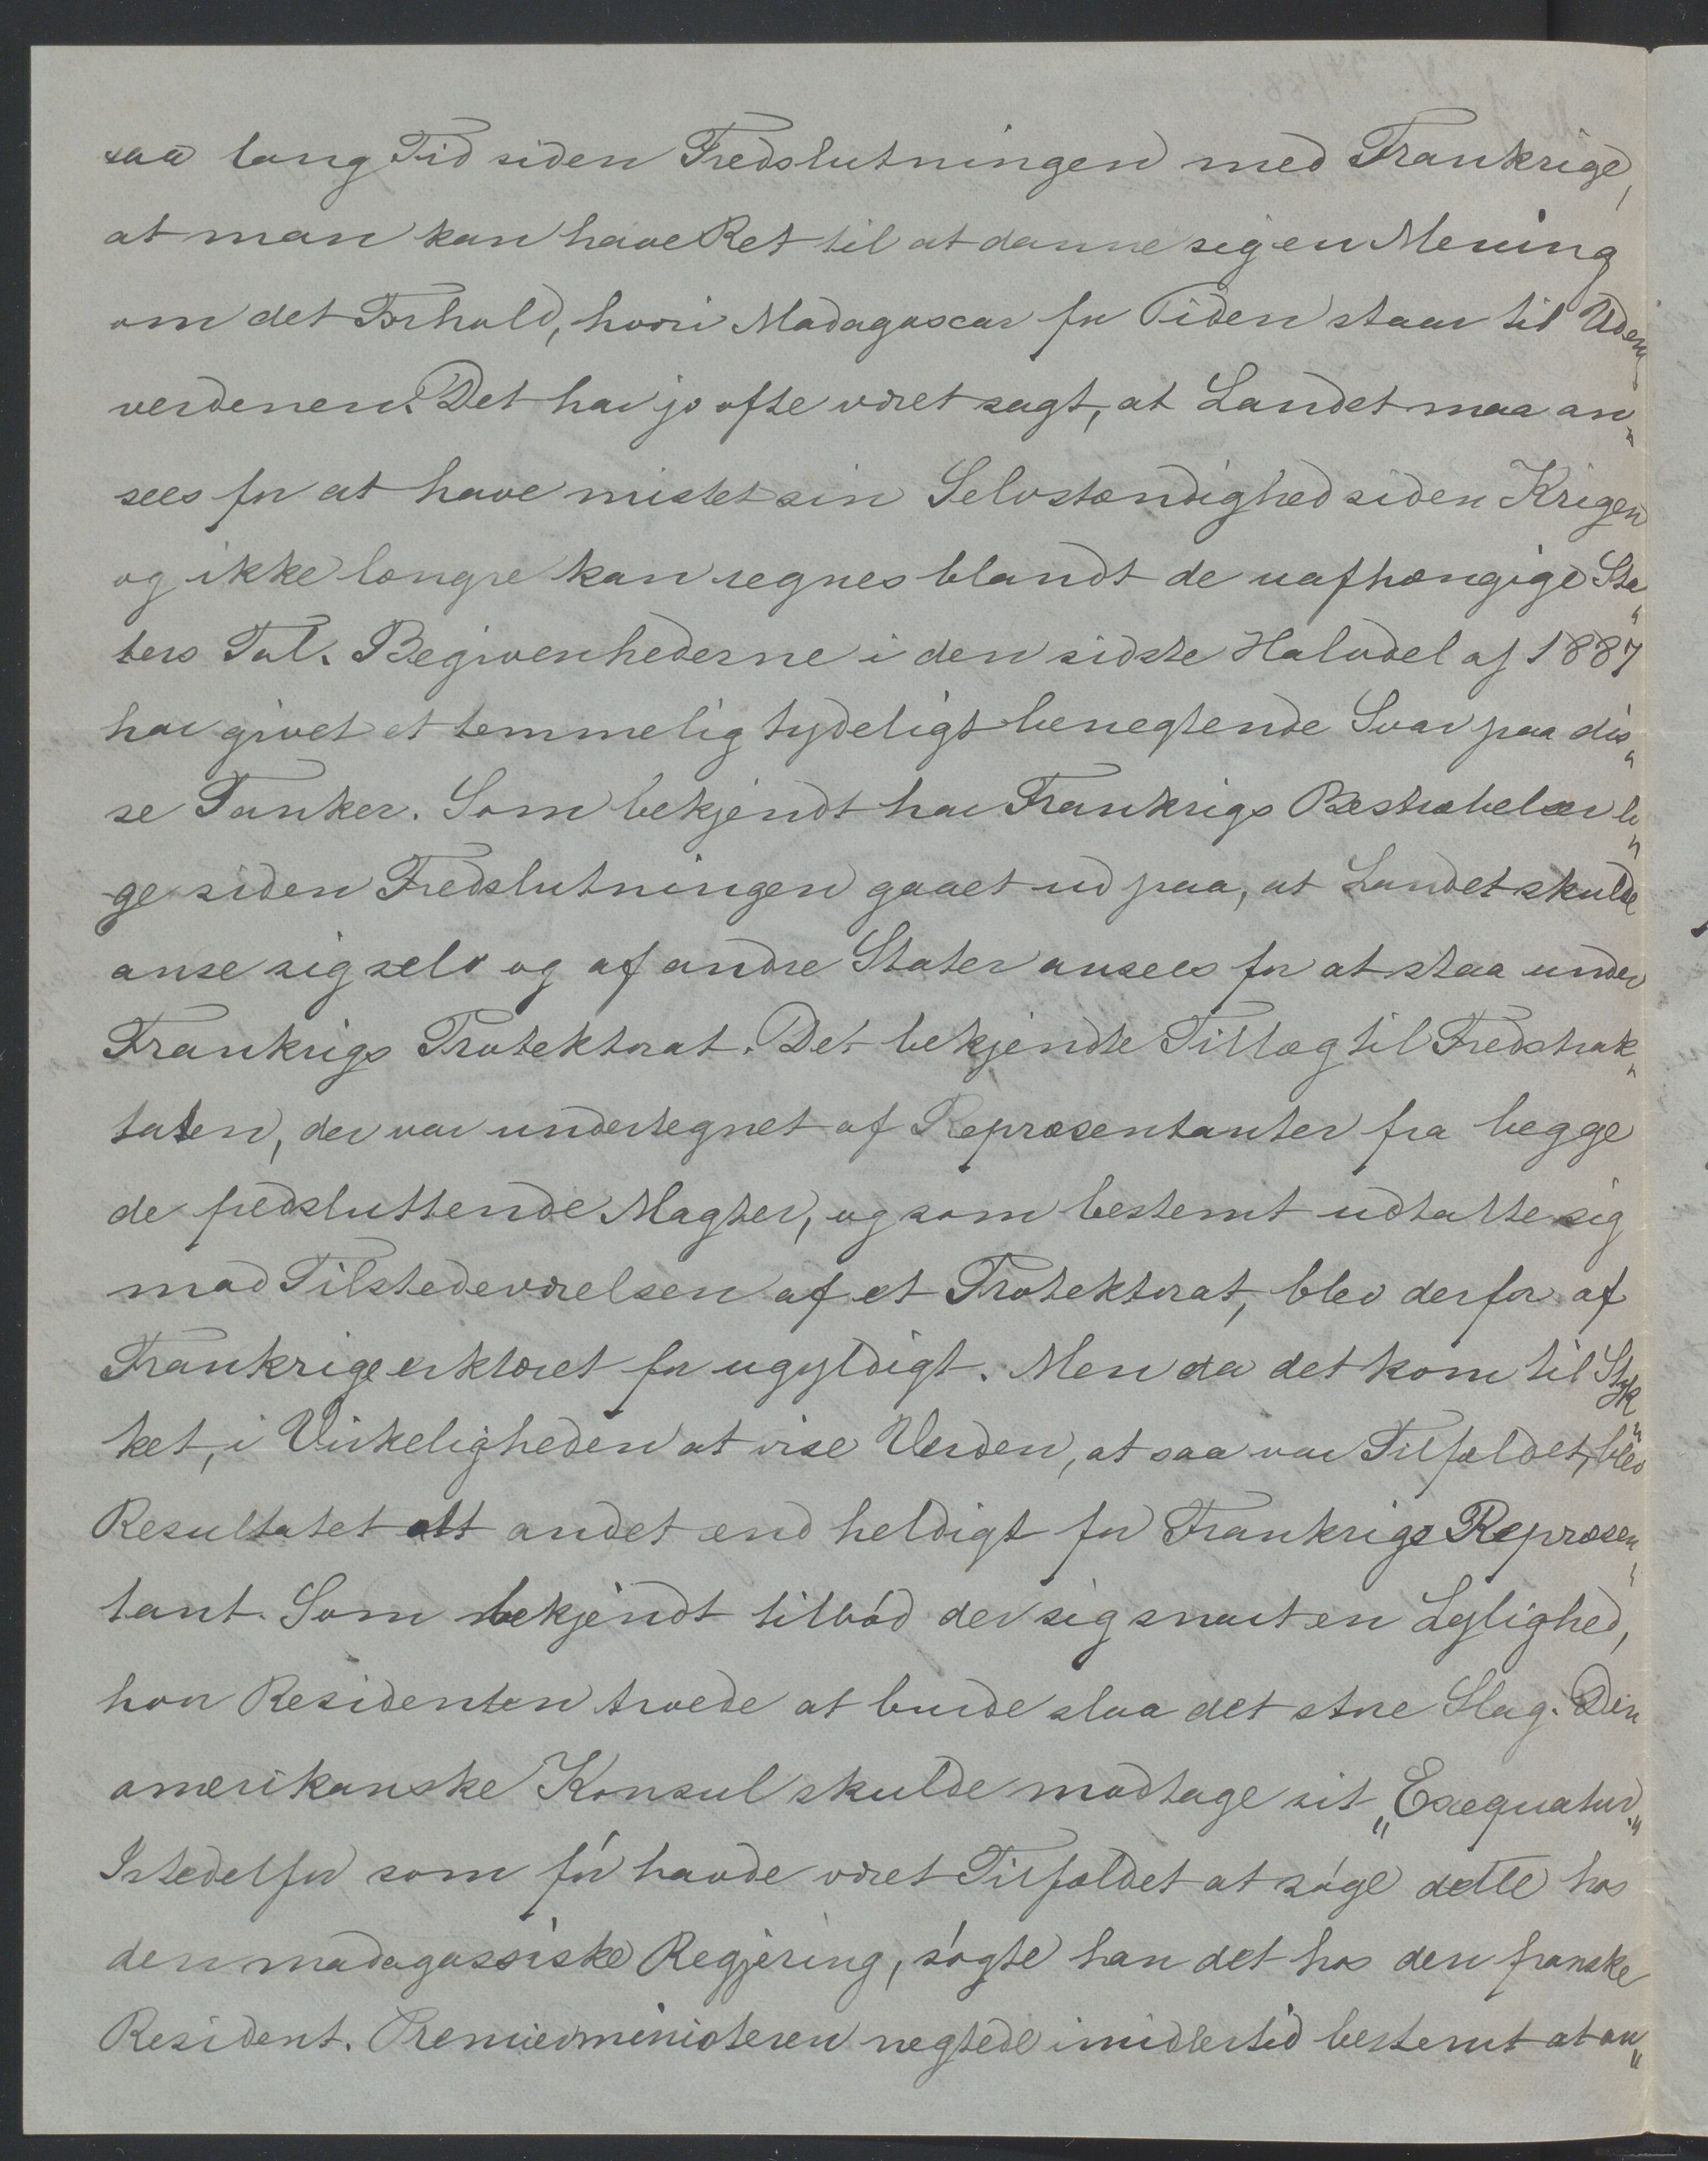 saa lang Tid siden Fredslutningen med Frankrige,
at man kan have Ret til at danne sig en Mening
om det Forhold, hvori Madagascar for Tiden staar til Uden„
verdenen. Det har jo ofte været sagt, at Landet maa an„
sees for at have mistet sin Selvstændighed siden Krigen
og ikke længre kan regnes blandt de uafhængige Sta„
ters Tal. Begivenhederne i den sidste Halvdel af 1887
har givet et temmelig tydeligt benegtende Svar paa dis„
se Tanker. Som bekjendt har Frankrigs Bestræbelser li„
ge siden Fredslutningen gaaet ud paa, at Landet skulde
anse sig selv og af andre Stater ansees for at staa under
Frankrigs Protektorat. Det bekjendte Tillæg til Fredstrak„
taten, der var undertegnet af Repræsentanter fra begge
de fredsluttende Magter, og som bestemt udtalte sig
mod Tilstedeværelsen af et Protektorat, blev derfor af
Frankrige erklæret for ugyldigt. Men da det kom til Styk„
ket, i Virkeligheden at vise Verden, at saa var Tilfældet, blev
Resultatet alt andet end heldigt for Frankrigs Repræsen„
tant. Som bekjendt tilbød der sig snart en Leilighed,
hvor Residenten troede at burde slaa det store Slag. Den
amerikanske Konsul skulde modtage sit „Exequatur.“
Istedetfor som før havde været Tilfældet at søge dette hos
den madagassiske Regjering, søgte han det hos den franske
Resident. Premierministeren negtede imidlertid bestemt at an„